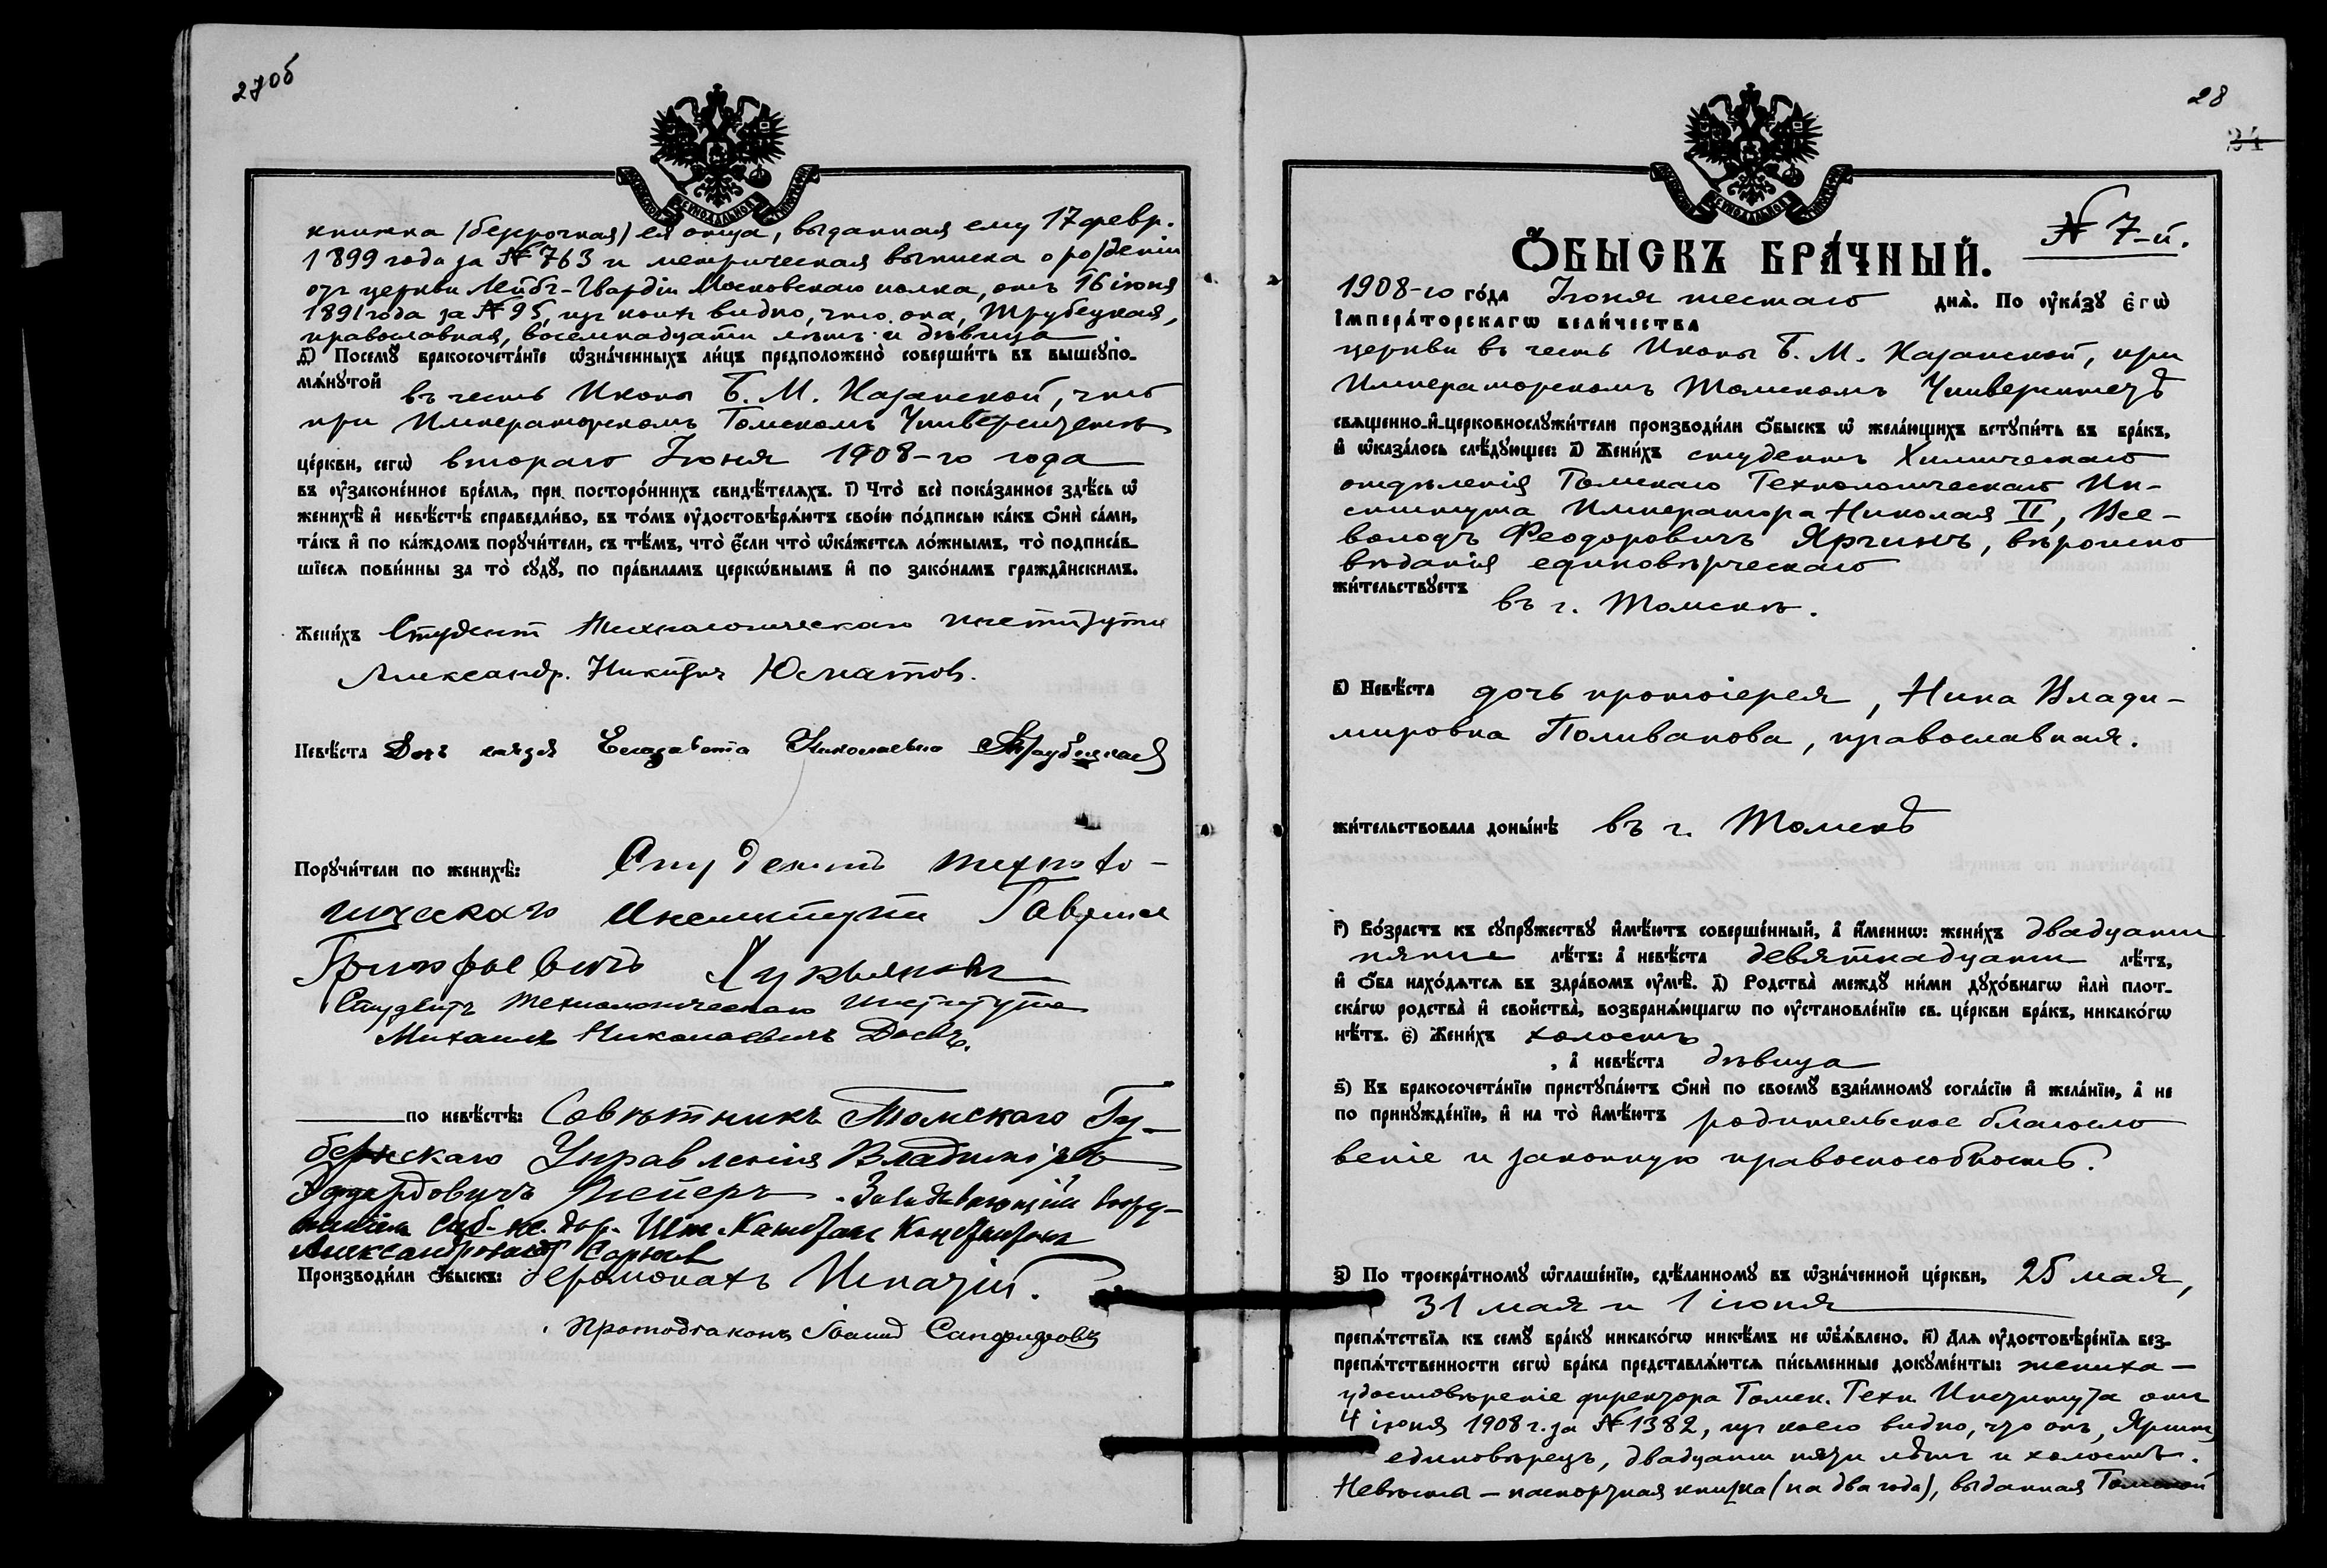 27об
книжка (безсрочная) ея отца, выданная ему 17 февр.
1899 года за № 763 и метрическая выписка о рожденіи
отъ церкви Лейбъ-Гвардіи Московскаго полка, отъ 16 іюня
1891 года за № 95, изъ коихъ видно, что она, Трубецкая,
православная, восемнадцати лѣтъ и дѣвица
д҃) Посемꙋ бракосочета́нїе ѡ҆зна́ченныхъ ли́цъ предположено̀ соверши́ть въ вышеупо-
мѧ́нꙋтой въ честь Иконы Б. М. Казанской, что
при Императорскомъ Томскомъ Университетѣ
це́ркви, сегѡ̀ второго Іюня 1908-го года
въ оу҆зако́ненное вре́мѧ, при посторо́ннихъ свидѣ́телѧхъ. і҃) Что̀ всѐ пока́занное здѣ́сь ѡ҆
женихѣ̀ и҆ невѣ́стѣ справедли́во, въ то́мъ оу҆достовѣрѧ́ютъ свое́ю по́дписью ка́къ ѻ҆нѝ са́ми,
та́къ и҆ по ка́ждомъ порꙋчи́тели, съ тѣ́мъ, что̀ є҆́сли что̀ ѡ҆ка́жетсѧ ло́жнымъ, то̀ подписа́в-
шїесѧ пови́нны за то̀ сꙋдꙋ̀, по пра́виламъ церкѡ́внымъ и҆ по зако́намъ гражда̂нскимъ.
Жени́хъ Студент Технологическаго института
Александр. Никитич Юматов.
Невѣ́ста Дочь князя Елизавета Николаевна Трубецкая
Порꙋчи́тели по женихѣ̀: Студентъ техноло-
гическаго Института Гавриил
Студентъ Технологическаго Института
Михаилъ Николаевичъ
по невѣ́стѣ: Совѣтникъ Томскаго Гу-
бернскаго Управленія Владиміръ
Эдуардовичъ Завѣдывающій
Сиб. ж. дор. Шт. Капитан Константин
Александрович
Производи́ли ѻ҆́быскъ: Іеромонахъ Игнатій.
Протодіаконъ Іоаннъ
28
34
№ 7-й.
Ѻ҆БЫСКЪ БРА́ЧНЫЙ.
1908-го го́да Іюня шестаго дня̀. По оу҆ка́зꙋ є҆гѡ̀
і҆мпера́торскагѡ вели́чества
церкви въ честь Иконы Б. М. Казанской, при
Императорскомъ Томскомъ Университетѣ
свѧщенно-и҆-церковнослꙋжи́тели производи́ли ѻ҆́быскъ ѡ҆ жела́ющихъ встꙋпи́ть въ бра́къ,
и҆ ѡ҆каза́лось слѣ́дꙋющее: а҃) Жени́хъ студентъ Химическаго
отдѣленія Томскаго Технологическаго Ин-
ститута Императора Николая II, Все-
володъ Феодоровичъ Яргинъ, вѣроиспо
вѣданія единовѣрческаго
жи́тельствꙋетъ
въ г. Томскѣ.
в҃) Невѣ́ста дочь протоіерея, Нина Влади-
мировна Поливанова, православная.
жи́тельствовала доны́нѣ въ г. Томскѣ
г҃) Во́зрастъ къ сꙋпрꙋ́жествꙋ и҆мѣ́ютъ соверше́нный, а҆ и҆́меннѡ: жени́хъ двадцати
пяти лѣ́тъ: а҆ невѣ́ста девятнадцати лѣ́тъ,
и҆ ѻ҆́ба нахо́дѧтсѧ въ здра́вомъ оу҆мѣ̀. д҃) Родства̀ междꙋ̀ ни́ми дꙋхо́внагѡ и҆лѝ плот-
ска́гѡ родства̀ и҆ свойства̀, возбранѧ́ющагѡ по оу҆становле́нїю св. це́ркви бра́къ, никако́гѡ
нѣ́тъ. є҃) Жени́хъ холостъ
, а҆ невѣ́ста дѣвица
ѕ҃) Къ бракосочета́нїю пристꙋпа́ютъ ѻ҆нѝ по своемꙋ̀ взаи́мномꙋ согла́сїю и҆ жела́нїю, а҆ не
по принꙋжде́нїю, и҆ на то̀ и҆мѣ́ютъ родительское благосло
веніе и законную правоспособность.
з҃) По троекра́тномꙋ ѡ҆глаше́нїю, сдѣ́ланномꙋ въ ѡ҆зна́ченной це́ркви, 25 мая,
31 мая и 1 іюня
препѧ́тствїѧ къ семꙋ̀ бра́кꙋ никако́гѡ никѣ́мъ не ѡ҆б̾ѧ́влено. и҃) Для оу҆достовѣре́нїѧ без-
препѧ́тственности сегѡ̀ бра́ка представлѧ́ютсѧ пи́сьменные докꙋме́нты: жениха —
удостовѣреніе директора Томск. Техн. Института отъ
4 іюня 1908 г. за № 1382, изъ коего видно, что онъ, Яргинъ,
единовѣрецъ, двадцати пяти лѣтъ и холостъ.
Невѣсты — паспортная книжка (на два года), выданная Томской